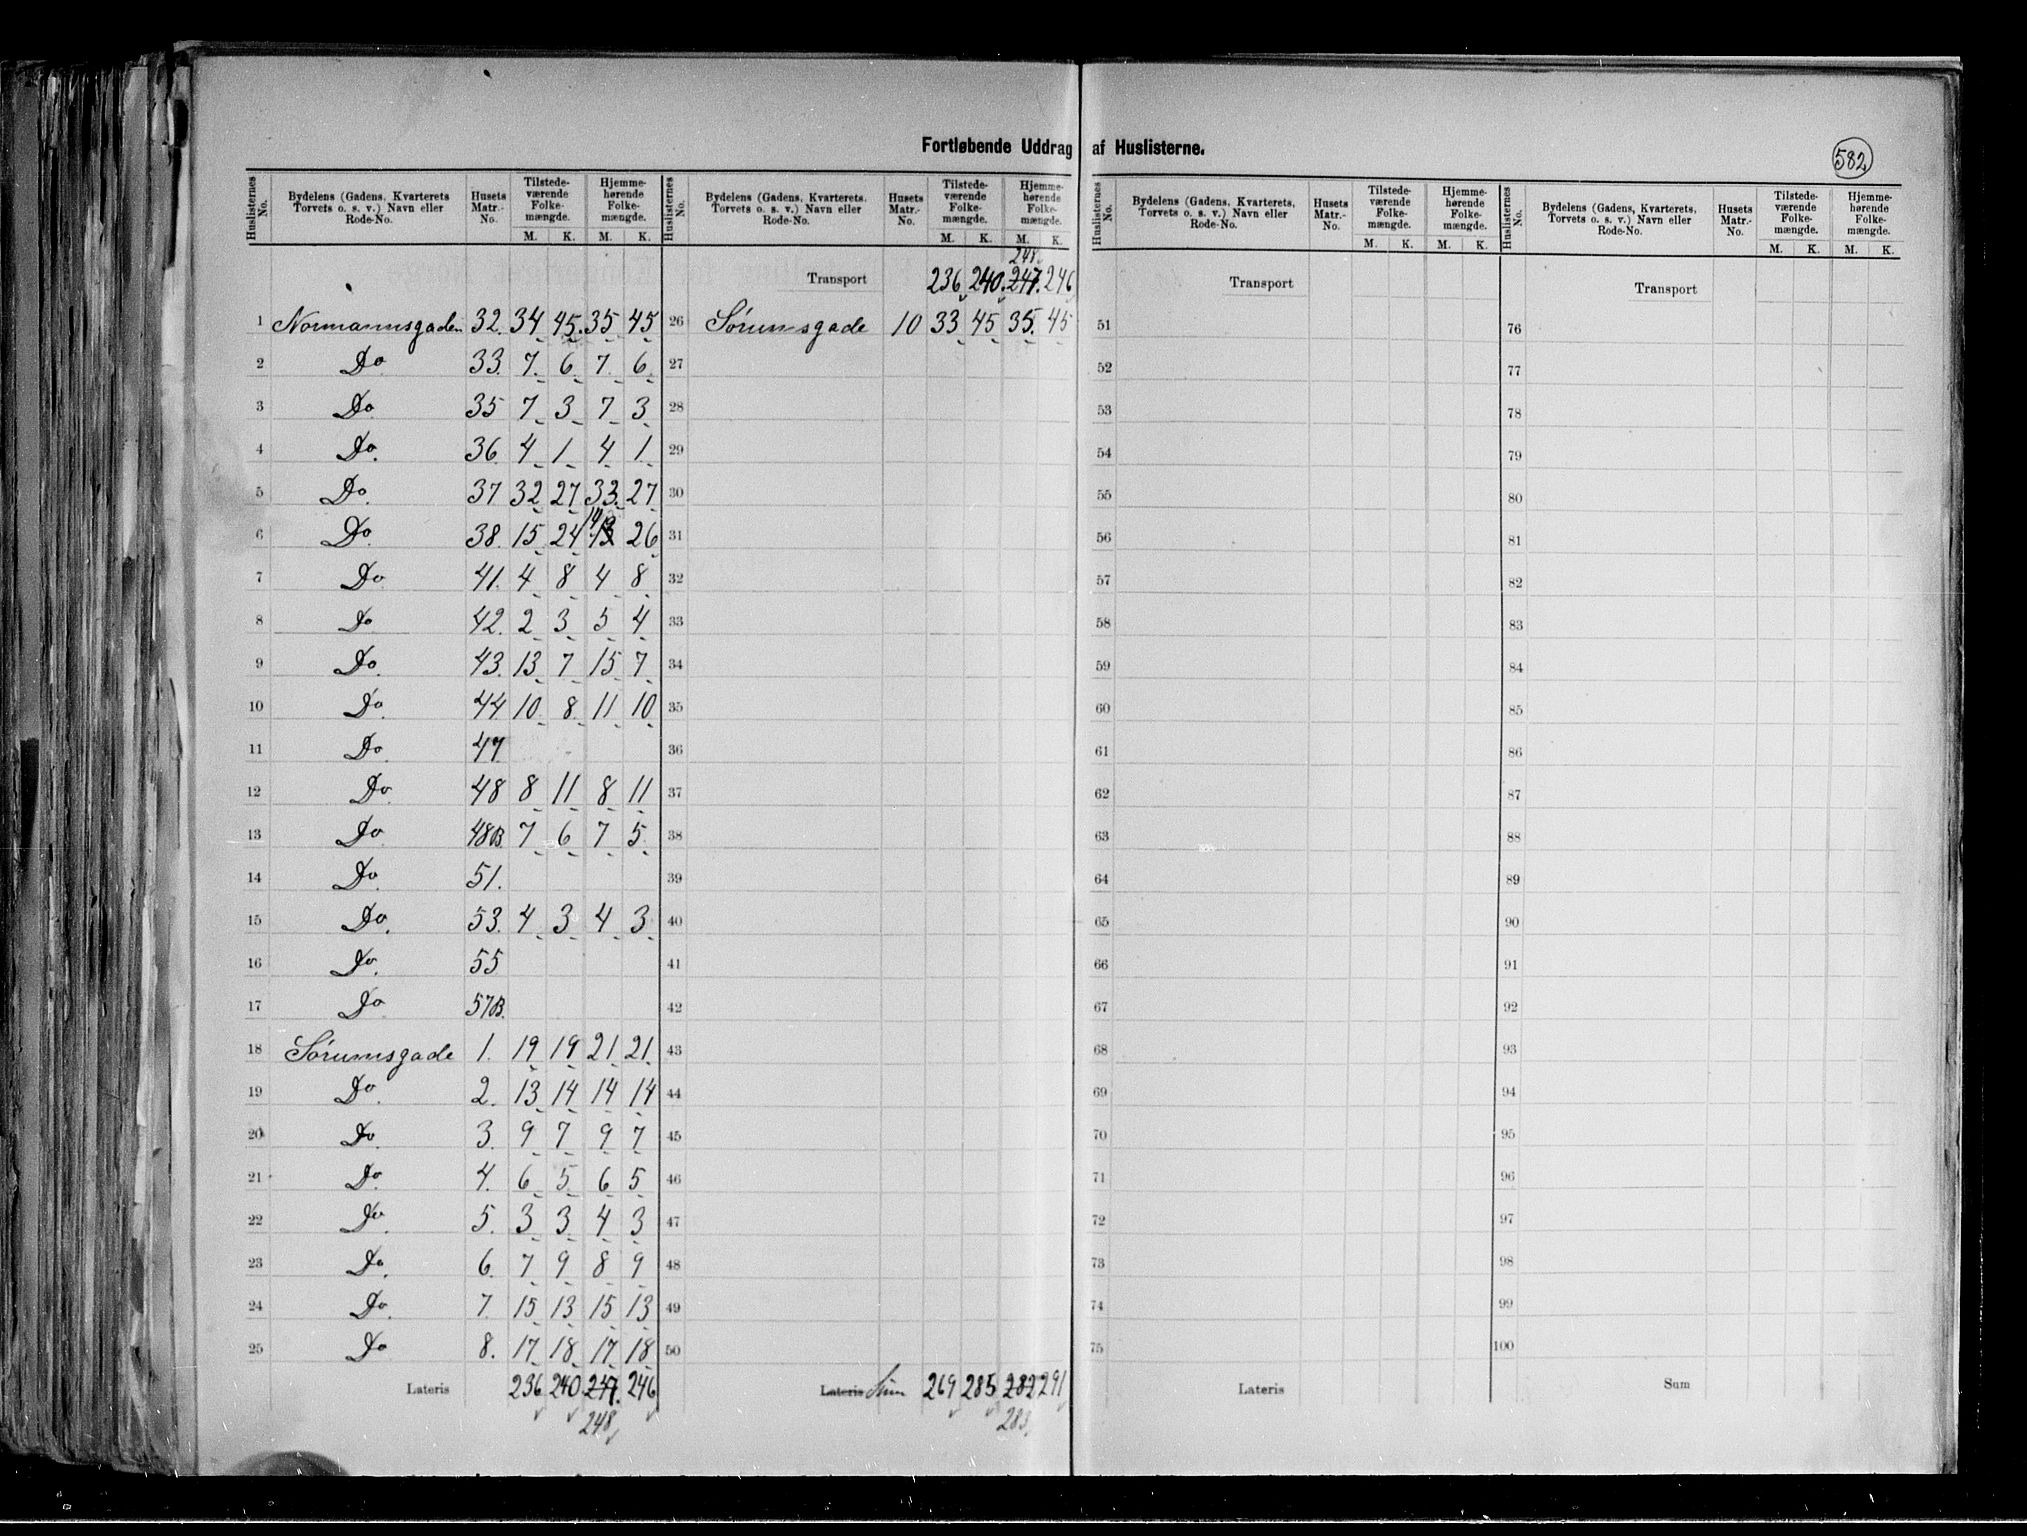 Fortløbende Uddrag af Huslisterne.
582
Huslisternes No. | Bydelens (Gadens, Kvarterets Torvets o. s. v.) Navn eller Rode-No. | Husets Matr.-No. | Tilstedeværende Folkemængde. M. K. | Hjemmehørende Folkemængde. M. K.
1 Normannsgaden 32. 34 45. 35 45
2 Do 33. 7. 6. 7. 6.
3 Do. 35 7 3 7 3
4 Do. 36. 4 1 4 1.
5 Do. 37 32 27 33. 27
6 Do. 38. 15 24 13 14 26
7 Do 41. 4 8 4 8
8 Do 42. 2 3 5 4
9 Do. 43. 13 7 15 7
10 Do. 44 10 8 11 10
11 Do. 47
12 Do. 48 8 11 8 11
13 Do 48B. 7 6 7 5
14 Do. 51.
15 Do. 53. 4 3 4 3
16 Do. 55
17 Do 57B.
18 Sørumsgade 1. 19 19 21 21
19 Do. 2. 13 14 14 14
20 Do. 3. 9 7 9 7
21 Do. 4. 6 5 6 5
22 Do. 5. 3 3 4 3
23 Do. 6. 7 9 8 9
24 Do. 7. 15 13 15 13
25 Do 8. 17 18 17 18
Lateris 236 240 247. 246
248
Huslisternes No. | Bydelens (Gadens, Kvarterets Torvets o. s. v.) Navn eller Rode-No. | Husets Matr.-No. | Tilstedeværende Folkemængde. M. K. | Hjemmehørende Folkemængde. M. K.
248
Transport 236 240. 247. 246
26 Sørumsgade 10 33 45 35. 45
27
28
29
30
31
32
33
34
35
36
37
38
39
40
41
42
43
44
45
46
47
48
49
50
Lateris Sum 269 285 282 291
283
Huslisternes No. | Bydelens (Gadens, Kvarterets, Torvets o. s. v.) Navn eller Rode-No. | Husets Matr.-No. | Tilstedeværende Folkemængde. M. K. | Hjemmehørende Folkemængde. M. K.
Transport
51
52
53
54
55
56
57
58
59
60
61
62
63
64
65
66
67
68
69
70
71
72
73
74
75
Lateris
Huslisternes No. | Bydelens (Gadens, Kvarterets, Torvets o. s. v.) Navn eller Rode-No. | Husets Matr.-No. | Tilstedeværende Folkemængde. M. K. | Hjemmehørende Folkemængde. M. K.
Transport
76
77
78
79
80
81
82
83
84
85
86
87
88
89
90
91
92
93
94
95
96
97
98
99
100
Sum